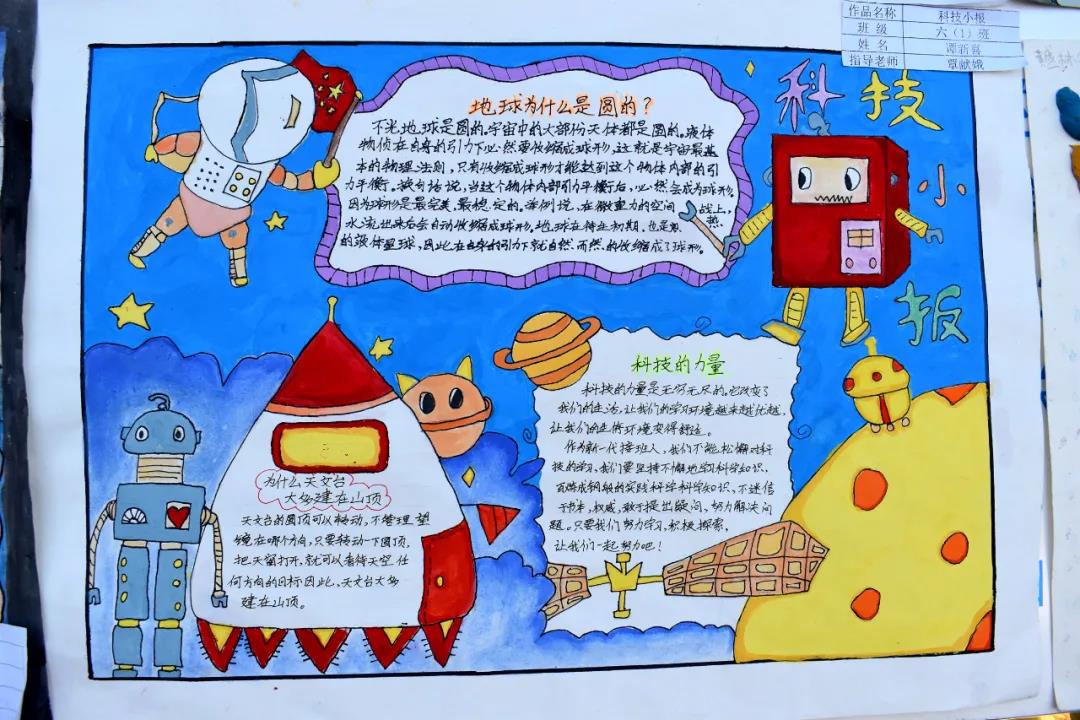 作品名称 科技小报
班级 六（1）班
姓名
指导老师 覃献娥
科技小报
地球为什么是圆的？
不光地球是圆的。宇宙中的大部份天体都是圆的。液体
物质在自身的引力下必然要收缩成球形，这就是宇宙最基
本的物理法则，只有收缩成球形才能达到这个物体内部的引
力平衡。换句话说，当这个物体内部引力平衡后，必然会成为球形。
因为球形是最完美、最稳定的。举例说，在微重力的空间战上，
水流出来后会自动收缩成球形，地球在诞生初期，也是熱
的液体星球，因此在自身的引力下就自然而然的收缩成了球形。
为什么天文台
大多建在山顶
天文台的圆顶可以转动，不管理望
镜在哪个方向，只要转动一下圆顶，
把天窗打开，就可以看待天空任
何方向的目标因此，天文台大多
建在山顶。
科技的力量
科技的力量是无穷无尽的。它改变了
我们的生活，让我们的学习环境越来越优越，
让我们的生活环境变得舒适。
作为新一代接班人，我们不能松懈对科
技的学习，我们要坚持不懈地学习科学知识，
百炼成钢般的实践科学科学知识，不迷信
于书本，权威，敢于提出疑问，努力解决问
题。只要我们努力学习，积极探索，
让我们一起努力吧！